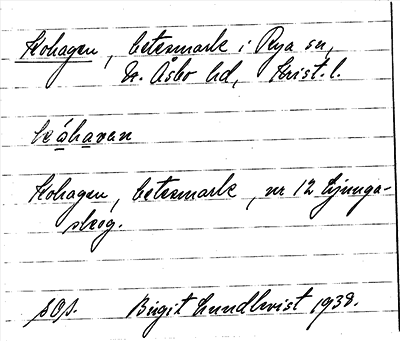 Kohagen, betesmark i Rya sn,
N. Åsbo hd, Krist. l.
Kohagen, betesmark, nr 12 Ljunga-
skog.
Birgit Lundkvist 1938.